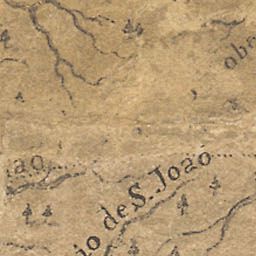 oba
ao
io de S. João